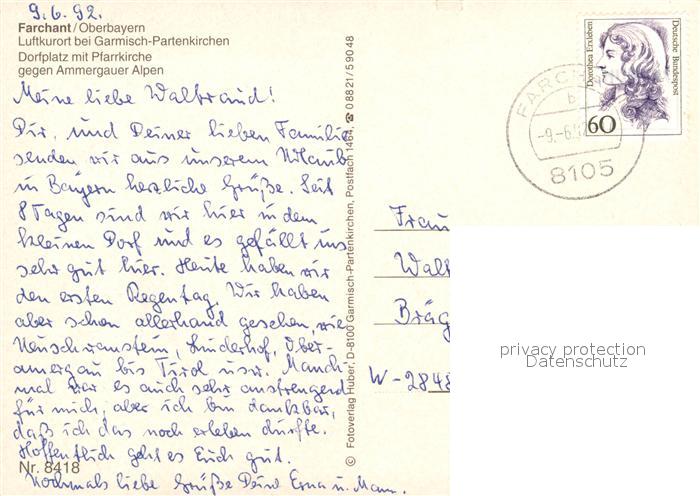 9.6.92.
Farchant/Oberbayern
Luftkurort bei Garmisch-Partenkirchen
Dorfplatz mit Pfarrkirche
gegen Ammergauer Alpen
Meine liebe Waltraud!
Dir, und Deiner lieben Familie
senden wir aus unserem Urlaub
in Bayern herzliche Grüße. Seit
8 Tagen sind wir hier in dem
kleinen Dorf und es gefällt uns
sehr gut hier. Heute haben wir
den ersten Regentag. Wir haben
aber schon allerhand gesehen, wie
Neuschwanstein, Linderhof, Ober-
amergau bis Tirol usw. Manch-
mal war es auch sehr anstrengend
für mich, aber ich bin dankbar,
daß ich das noch erleben durfte.
Hoffentlich geht es Euch gut.
Nr. 8418
Nochmals liebe Grüße Deine Erna u. Mann.
© Fotoverlag Huber, D-8100 Garmisch-Partenkirchen, Postfach 1464, ☎ 0 88 21/5 90 48
Dorothea Erxleben
Deutsche Bundespost
60
FARCHANT
b
-9.-6.92
8105
Frau
Walt
Bräg
W-2848
privacy protection
Datenschutz